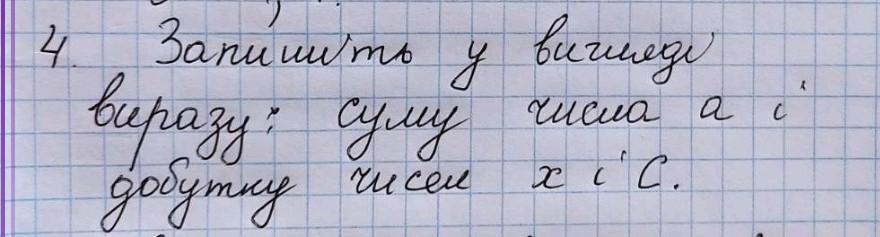 4. Запишіть у вигляді
виразу: суму числа а і
добутку чисел х і С.